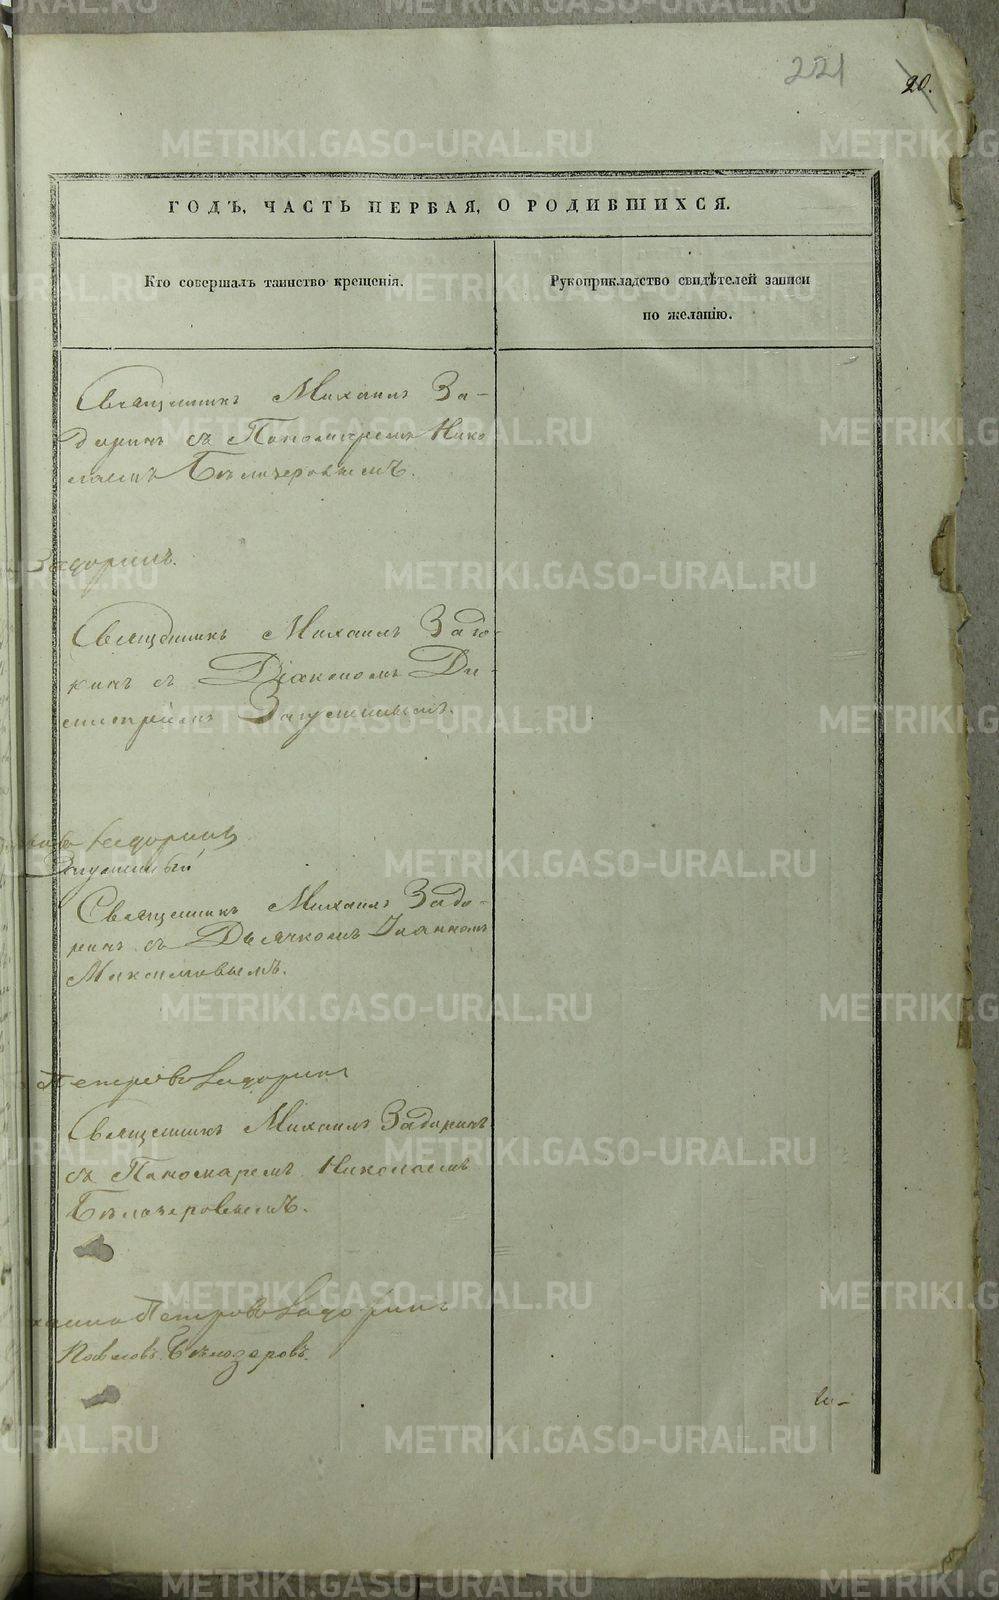 221
20.
ГОДЪ, ЧАСТЬ ПЕРВАЯ, О РОДИВШИХСЯ.
Кто совершалъ таинство крещенія.
Рукоприкладство свидѣтелей записи
по желанію.
Священникъ Михаилъ За-
доринъ съ Пономаремъ Нико
лаемъ Бѣлозеровымъ.
Задоринъ.
Священникъ Михаилъ Задо-
ринъ съ Діакономъ Ди-
митріемъ Запутинымъ.
Задоринъ
Священникъ Михаилъ Задо-
ринъ съ Дьячкомъ Іоанномъ
Максимовымъ.
Петровъ Задоринъ
Священникъ Михаилъ Задоринъ
съ Пономаремъ Николаемъ
Бѣлозеровымъ.
Петровъ Задоринъ
Бѣлозеровъ.
METRIKI.GASO-URAL.RU